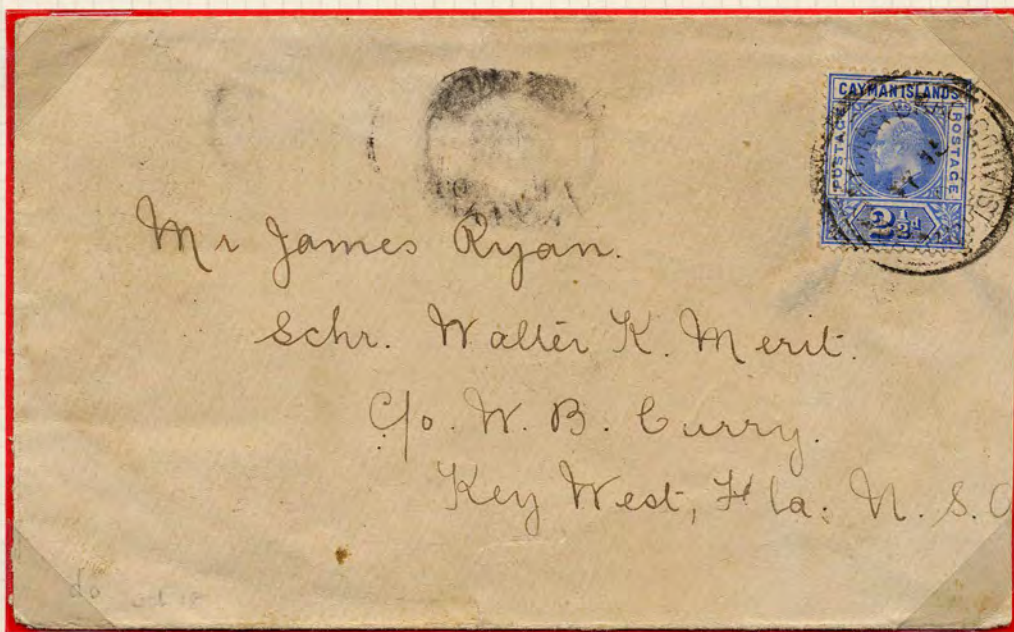 CAYMAN ISLANDS
POSTAGE POSTAGE
2½d
Mr James Ryan.
Schr. Walter K. Merit.
C/o. W. B. Curry.
Key West, Fla. U. S.
do